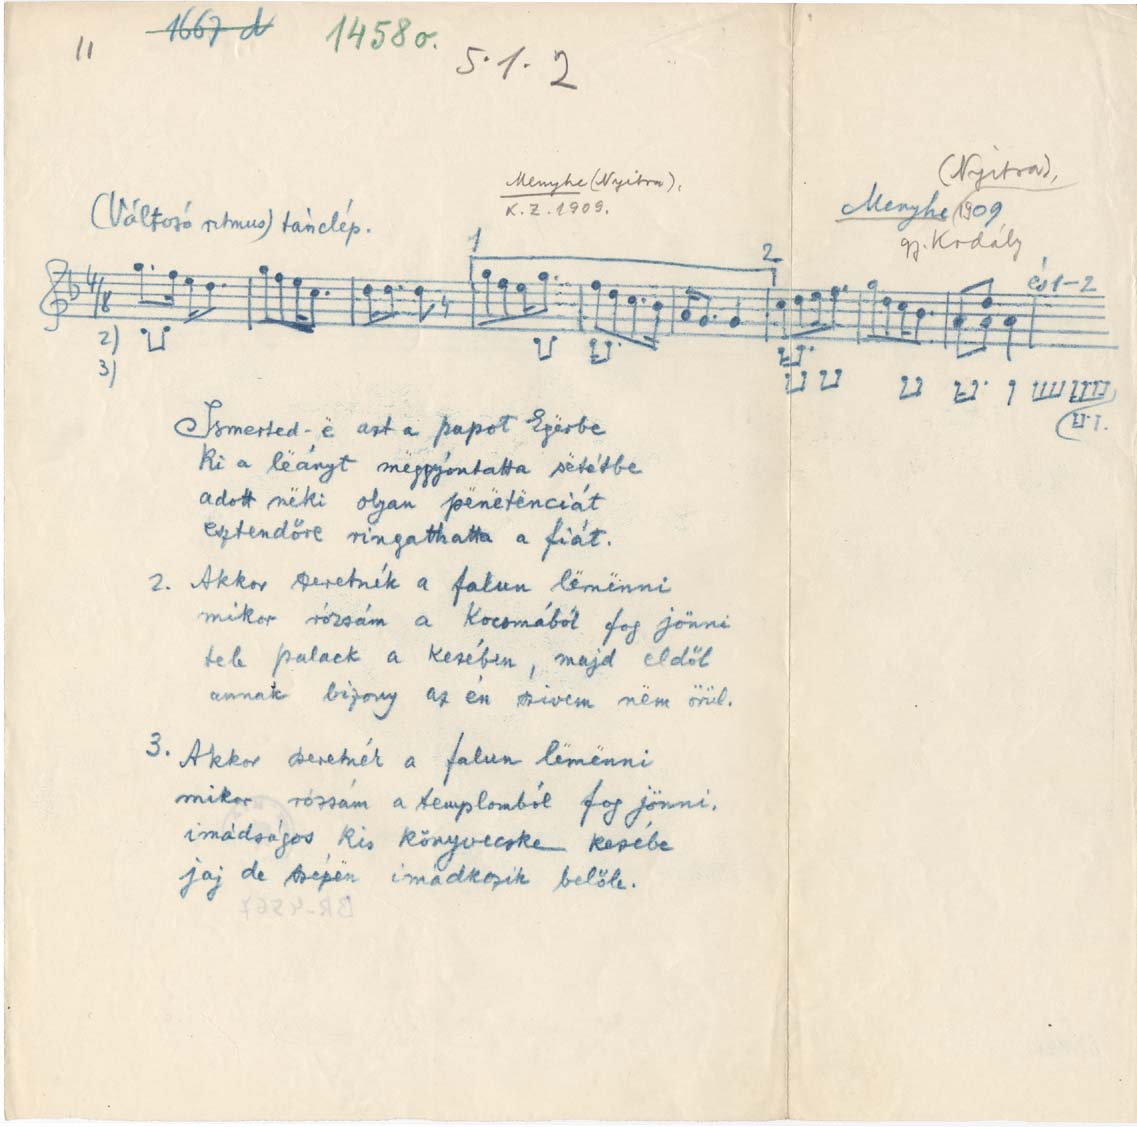 1667 d
11
1458 o.
5.1.2
Menyhe (Nyitra),
K.Z. 1909.
(Nyitra),
Menyhe 1909
gy. Kodály
(Változó ritmus) tánclép.
1
2
4/8
és 1-2
2)
3)
Ismerted-ë azt a papot Egërbe
Ki a lëányt mëggyóntatta sëtétbe
adott nëki olyan pënëtënciát
esztendőre ringathatta a fiát.
2. Akkor szeretnék a falun lëmënni
mikor rózsám a kocsmából fog jönni
tele palack a kezében, majd eldől
annak bizony az én szivem nëm örül.
3. Akkor szeretnék a falun lëmënni
mikor rózsám a templomból fog jönni.
imádságos kis könyvecske kezébe
jaj de szépën imádkozik belőle.
BR-4567